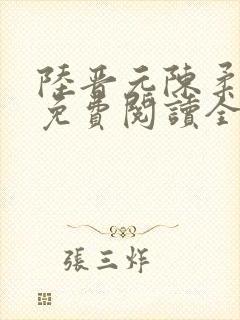 陸晉元陳柔
免費閱讀全
張三炸